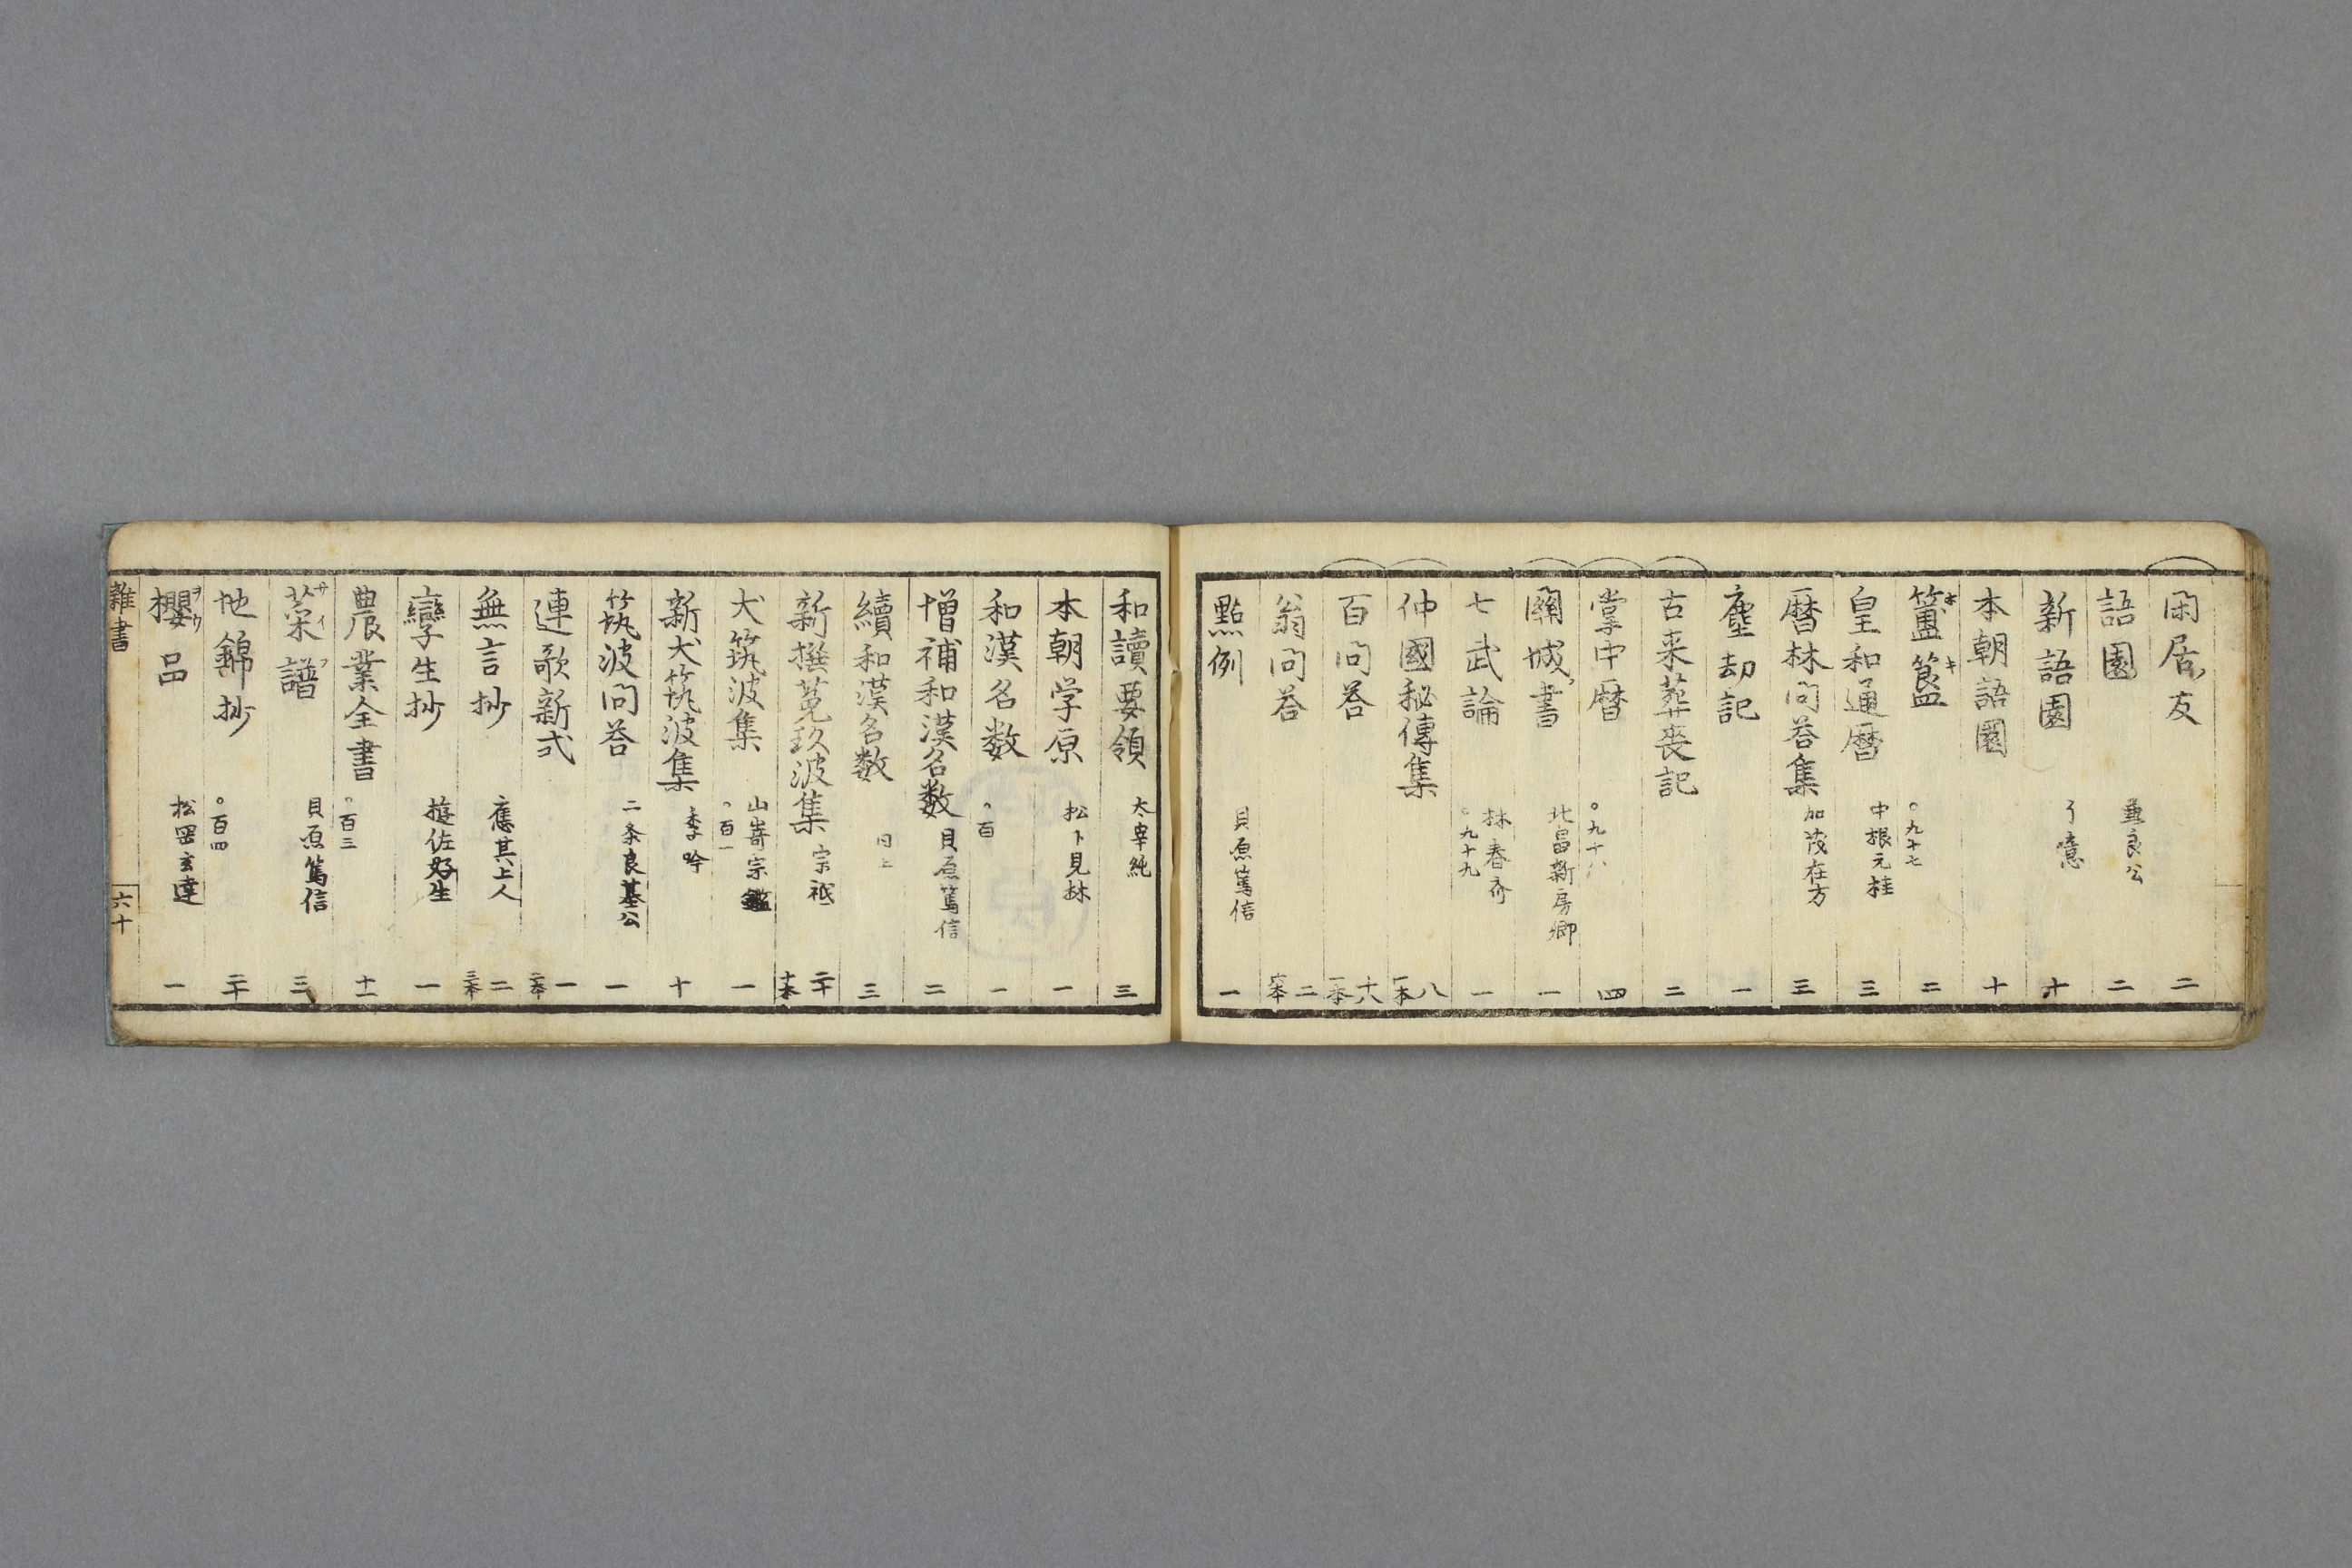 閑居友 二
語園 兼良公 二
新語園 了意 十
本朝語園 十
簠簋 ホ キ 二
。九十七
皇和通暦 中根元桂 三
暦林問荅集 加茂在方 三
塵劫記 一
古来葬喪記 二
掌中暦 四
。九十八
關城書 北畠新房卿 一
七武論 林春斎 一
。九十九
仲國秘傳集 八 一本
百問荅 十六 一本
翁問荅 二 六本
點例 貝原篤信 一
和讀要領 太宰純 三
本朝学原 松卜見林 一
和漢名数 一
。百
増補和漢名数 貝原篤信 二
續和漢名数 同上 三
新撰菟玖波集 宗祇 二十 十本
犬筑波集 山嵜宗鑑 一
。百一
新犬筑波集 季吟 十
筑波問荅 二条良基公 一
連歌新式 一 二本
無言抄 應其上人 二 三本
孿生抄 遊佐好生 一
農業全書 十一
。百三
菜譜 サイフ 貝原篤信 三
地錦抄 二十
。百四
櫻品 ヲウ 松岡玄達 一
雜書 六十